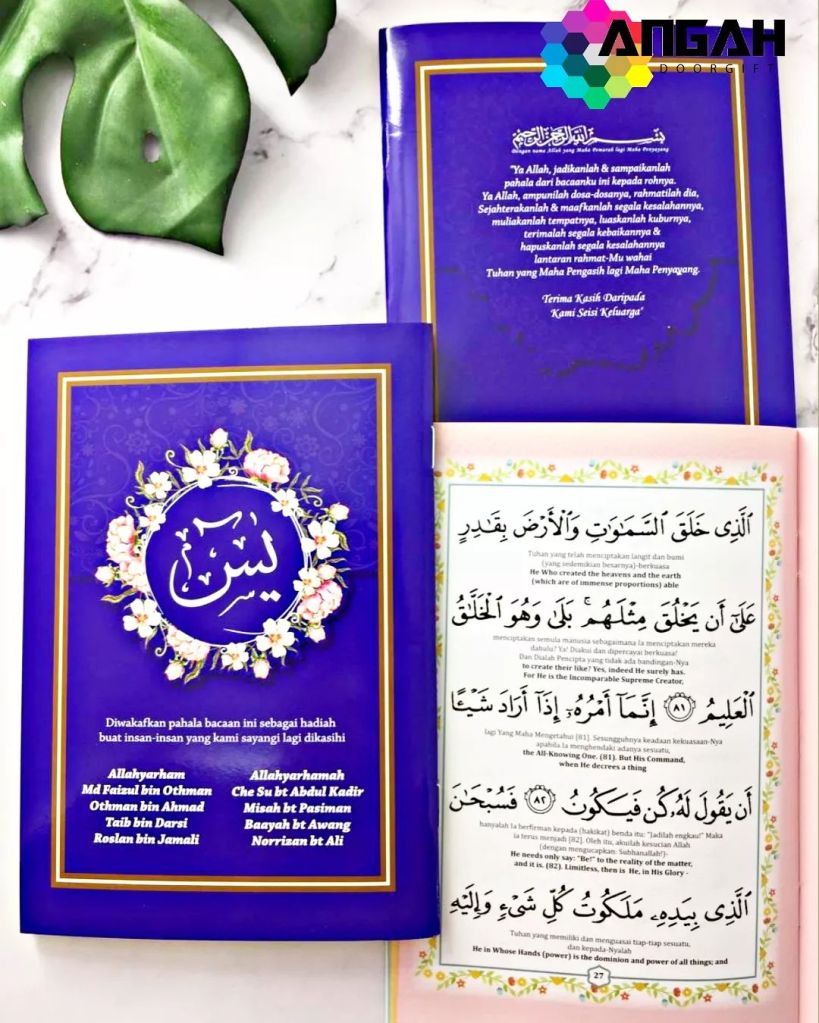 ANGAH
DOORGIFT
بسم الله الرحمن الرحيم
Dengan nama Allah yang Maha Pemurah lagi Maha Penyayang
"Ya Allah, jadikanlah & sampaikanlah
pahala dari bacaanku ini kepada rohnya.
Ya Allah, ampunilah dosa-dosanya, rahmatilah dia,
Sejahterakanlah & maafkanlah segala kesalahannya,
muliakanlah tempatnya, luaskanlah kuburnya,
terimalah segala kebaikannya &
hapuskanlah segala kesalahannya
lantaran rahmat-Mu wahai
Tuhan yang Maha Pengasih lagi Maha Penyayang.
Terima Kasih Daripada
Kami Seisi Keluarga"
يس
Diwakafkan pahala bacaan ini sebagai hadiah
buat insan-insan yang kami sayangi lagi dikasihi
Allahyarham
Md Faizul bin Othman
Othman bin Ahmad
Taib bin Darsi
Roslan bin Jamali
Allahyarhamah
Che Su bt Abdul Kadir
Misah bt Pasiman
Baayah bt Awang
Norrizan bt Ali
ٱلَّذِى خَلَقَ ٱلسَّمَٰوَٰتِ وَٱلْأَرْضَ بِقَٰدِرٍ
Tuhan yang telah menciptakan langit dan bumi
(yang sedemikian besarnya)-berkuasa
He Who created the heavens and the earth
(which are of immense proportions) able
عَلَىٰٓ أَن يَخْلُقَ مِثْلَهُم ۚ بَلَىٰ وَهُوَ ٱلْخَلَّٰقُ
menciptakan semula manusia sebagaimana Ia menciptakan mereka
dahulu? Ya! Diakui dan dipercayai berkuasa!
Dan Dialah Pencipta yang tidak ada bandingan-Nya
to create their like? Yes, indeed He surely has.
For He is the Incomparable Supreme Creator,
ٱلْعَلِيمُ ٨١ إِنَّمَآ أَمْرُهُۥٓ إِذَآ أَرَادَ شَيْـًٔا
lagi Yang Maha Mengetahui [81]. Sesungguhnya keadaan kekuasaan-Nya
apabila Ia menghendaki adanya sesuatu,
the All-Knowing One. (81). But His Command,
when He decrees a thing
أَن يَقُولَ لَهُۥ كُن فَيَكُونُ ٨٢ فَسُبْحَٰنَ
hanyalah Ia berfirman kepada (hakikat) benda itu: "Jadilah engkau!" Maka
ia terus menjadi [82]. Oleh itu, akuilah kesucian Allah
(dengan mengucapkan: Subhanallah!)-
He needs only say: "Be!" to the reality of the matter,
and it is. (82). Limitless, then is He, in His Glory -
ٱلَّذِى بِيَدِهِۦ مَلَكُوتُ كُلِّ شَىْءٍ وَإِلَيْهِ
Tuhan yang memiliki dan menguasai tiap-tiap sesuatu,
dan kepada-Nyalah
He in Whose Hands (power) is the dominion and power of all things; and
27